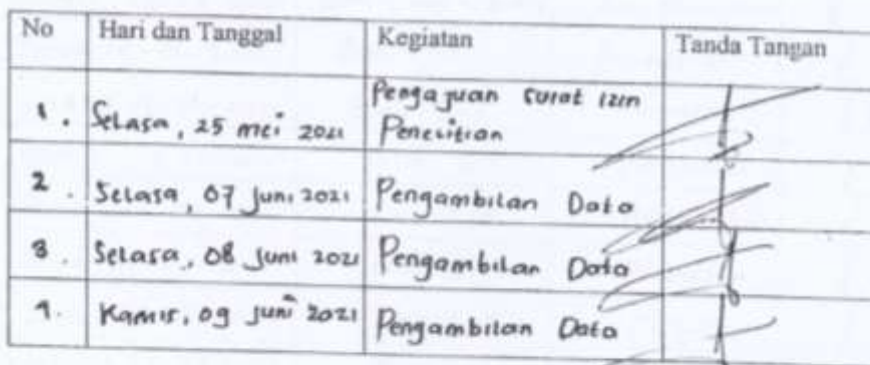 No Hari dan Tanggal Kegiatan Tanda Tangan
1. Selasa, 25 mei 2021 Pengajuan surat izin
Penelitian
2. Selasa, 07 Juni 2021 Pengambilan Data
3. Selasa, 08 Juni 2021 Pengambilan Data
4. Kamis, 09 Juni 2021 Pengambilan Data